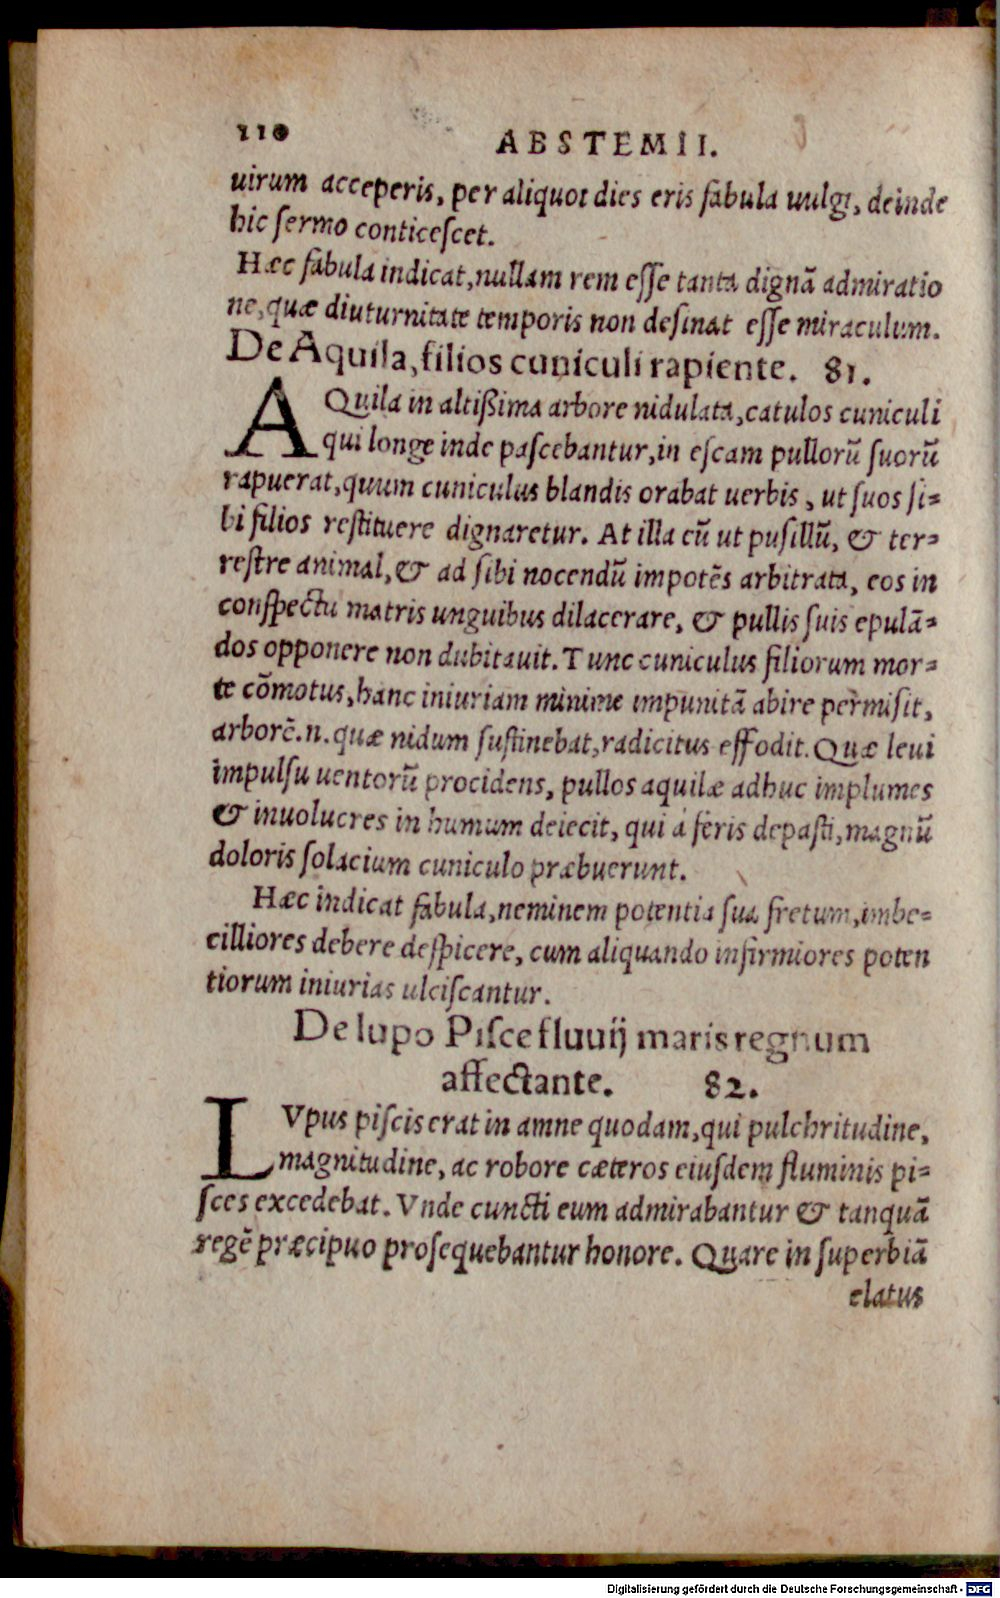 110 ABSTEMII.
uirum acceperis, per aliquot dies eris fabula uulgi, deinde
hic ſermo conticeſcet.
Hæc fabula indicat, nullam rem eſſe tanta dignã admiratio
ne, quæ diuturnitate temporis non deſinat eſſe miraculum.
De Aquila, filios cuniculi rapiente. 81.
AQuila in altißima arbore nidulata, catulos cuniculi
qui longe inde paſcebantur, in eſcam pullorũ ſuorũ
rapuerat, quum cuniculus blandis orabat uerbis, ut ſuos ſi=
bi filios reſtituere dignaretur. At illa eũ ut puſillũ, & ter=
reſtre animal, & ad ſibi nocendũ impotẽs arbitrata, eos in
conſpectu matris unguibus dilacerare, & pullis ſuis epulã=
dos opponere non dubitauit. Tunc cuniculus filiorum mor=
te cõmotus, hanc iniuriam minime impunitã abire permiſit,
arborẽ.n. quæ nidum ſuſtinebat, radicitus effodit. Quæ leui
impulſu uentorũ procidens, pullos aquilæ adhuc implumes
& inuolucres in humum deiecit, qui à feris depaſti, magnũ
doloris ſolacium cuniculo præbuerunt.
Hæc indicat fabula, neminem potentia ſua fretum, imbe=
cilliores debere deſpicere, cum aliquando infirmiores poten
tiorum iniurias ulciſcantur.
De lupo Piſce fluuij maris regnum
affectante. 82.
LVpus piſcis erat in amne quodam, qui pulchritudine,
magnitudine, ac robore cæteros eiuſdem fluminis pi=
ſces excedebat. Vnde cuncti eum admirabantur & tanquã
regẽ præcipuo proſequebantur honore. Quare in ſuperbiã
elatus
Digitalisierung gefördert durch die Deutsche Forschungsgemeinschaft - DFG